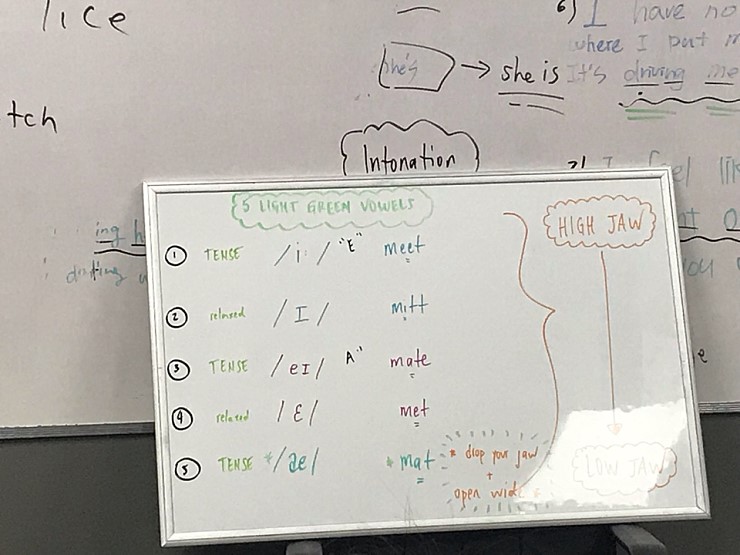 lice
tch
she's → she is
Intonation
6) I have no
where I put
It's driving me
2) I feel
ing
5 LIGHT GREEN VOWELS
① TENSE /i:/ "E" meet
② relaxed /I/ mitt
③ TENSE /eI/ A" mate
④ relaxed /ɛ/ met
⑤ TENSE */æ/ * mat
* drop your jaw
+
open wide *
HIGH JAW
LOW JAW